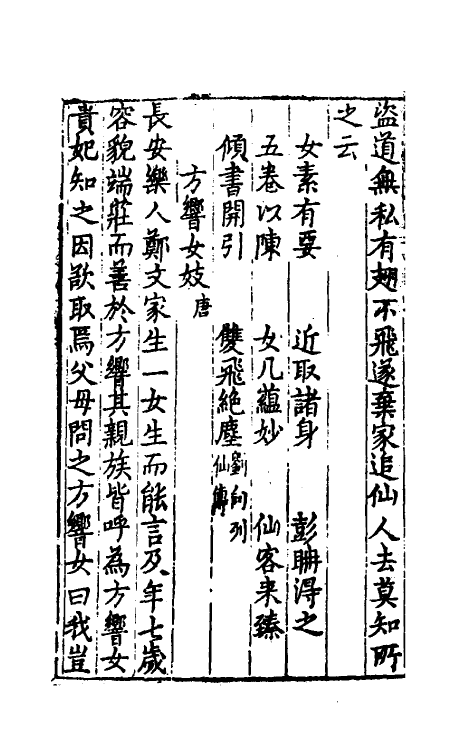 盜道無私有翅不飛遂棄家追仙人去莫知所
之云
女素有要 近取諸身 彭聃得之
五卷以陳 女几蘊妙 仙客來臻
傾書開引 雙飛絕塵 劉向列仙傳
方響女妓 唐
長安樂人鄭文家生一女生而能言及年七歲
容貌端莊而善於方響其親族皆呼為方響女
貴妃知之因欲取焉父母問之方響女曰我豈